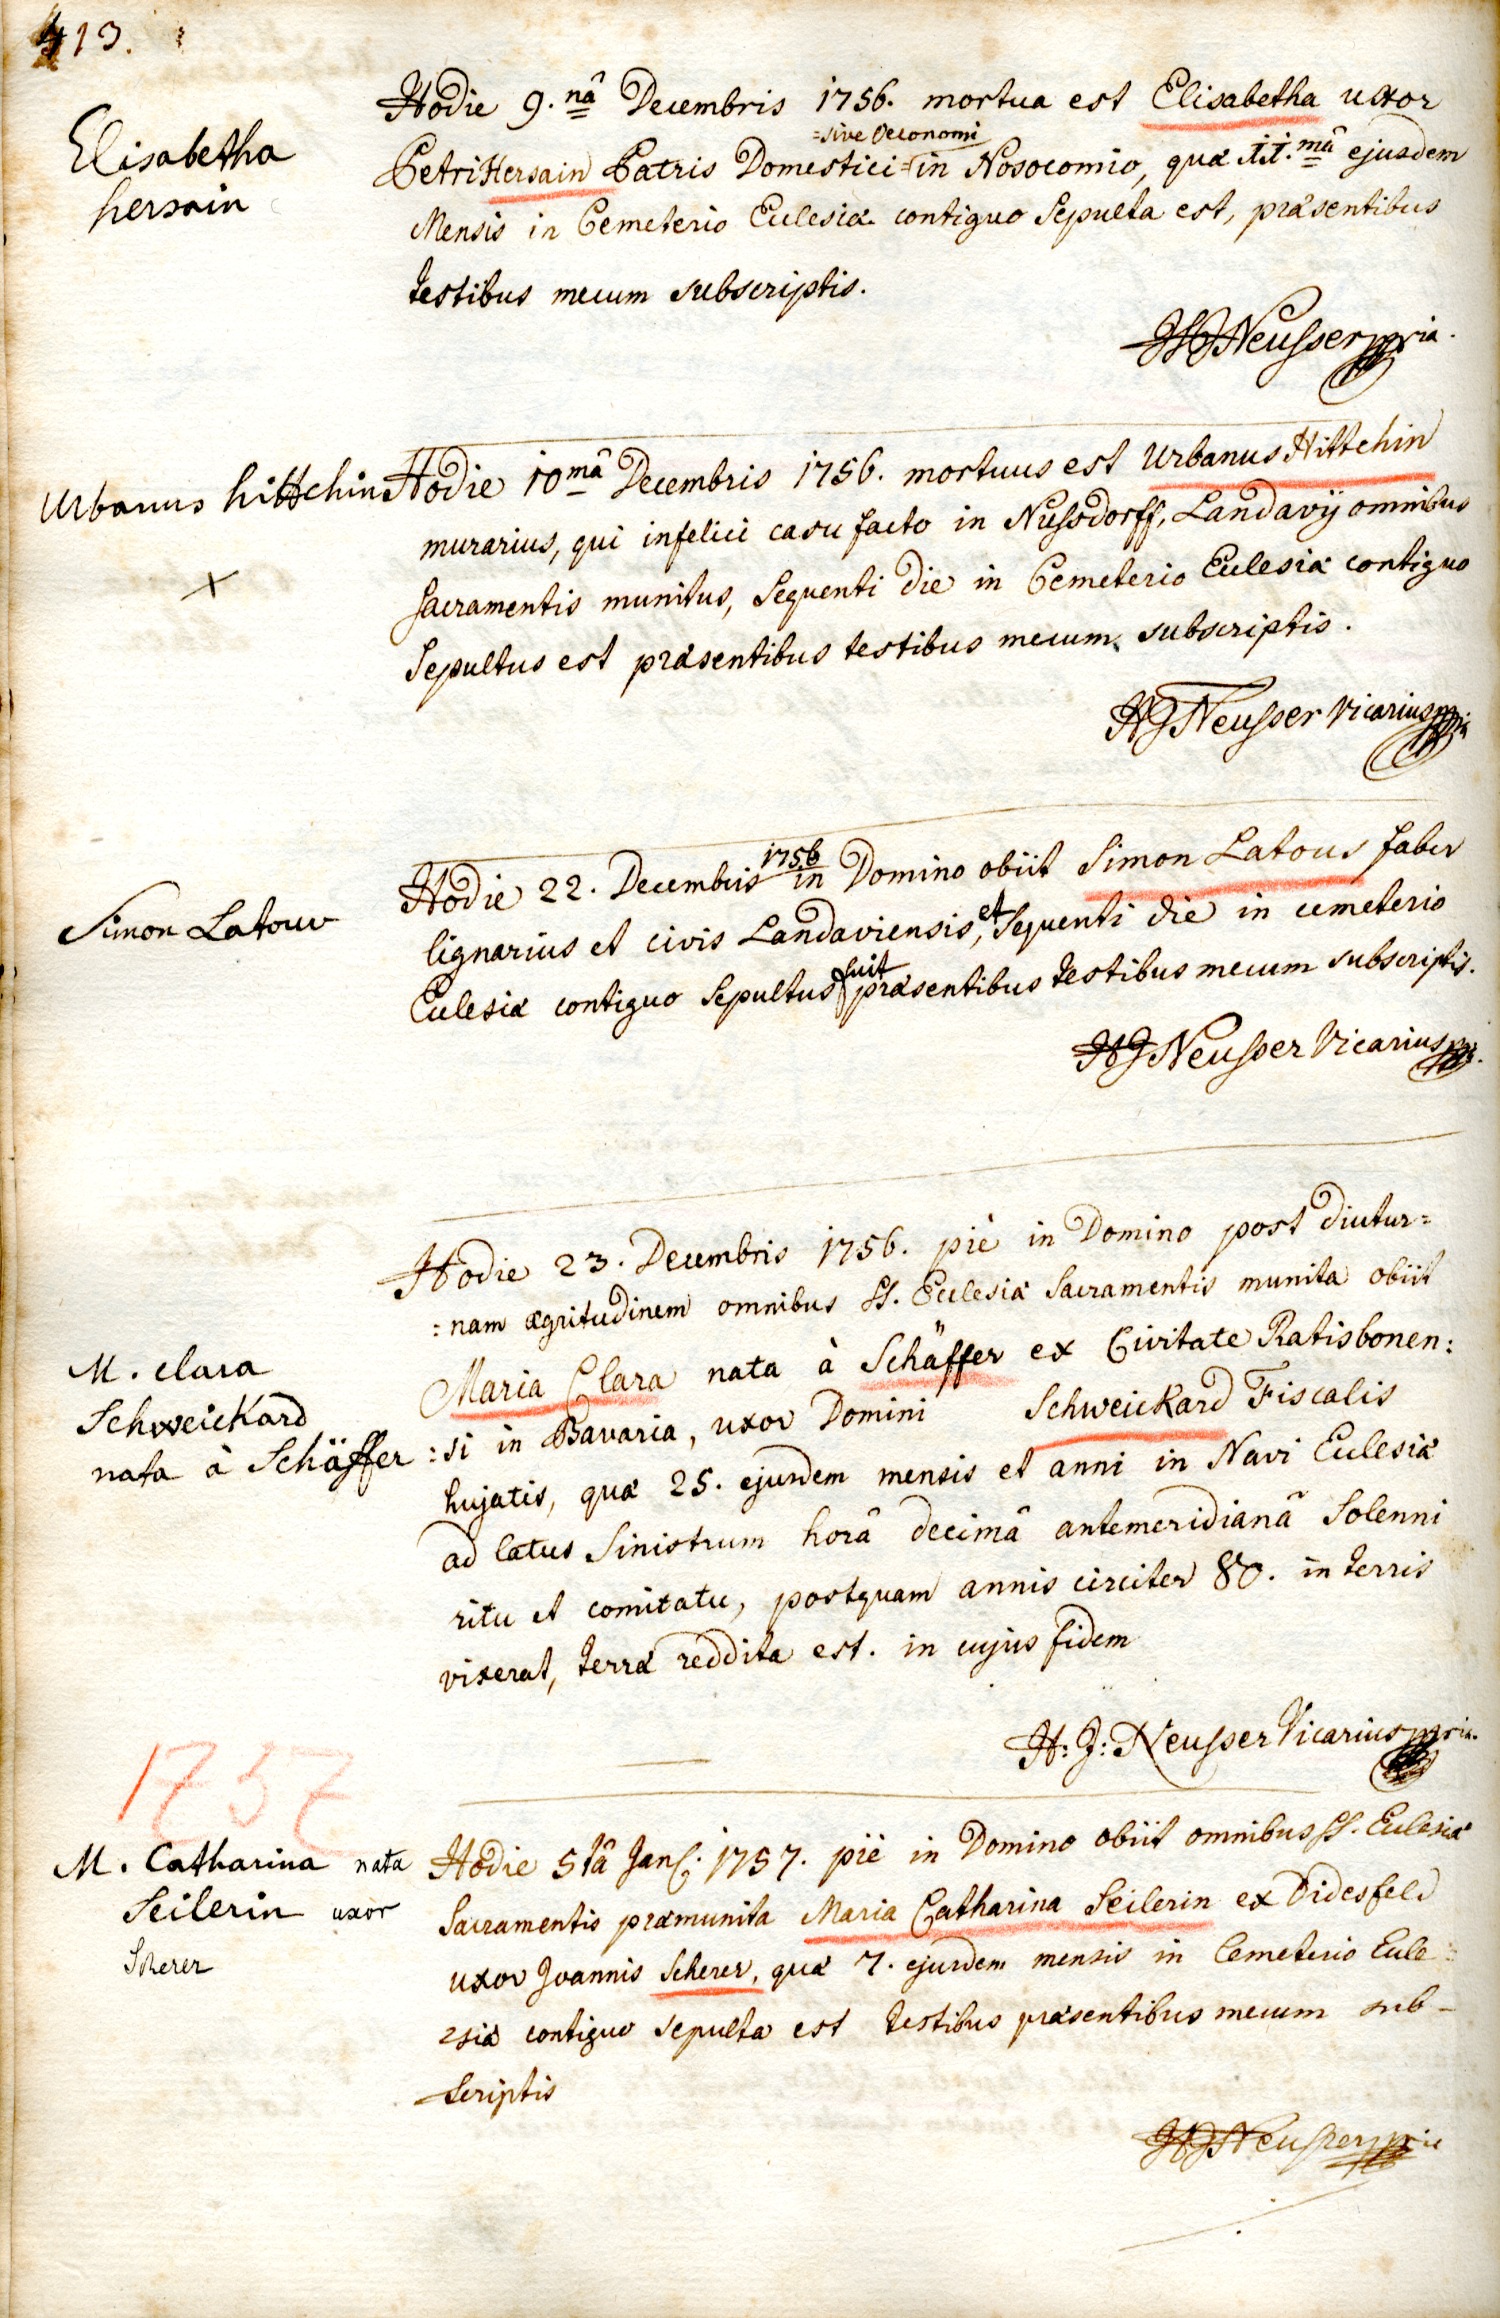 413.
Elisabetha
hersain
Hodie 9.nâ Decembris 1756. mortua est Elisabetha uxor
=sive Oeconomi
Petri Hersain Patris Domestici = in Nosocomio, quæ 11.mâ ejusdem
Mensis in Cemeterio Eclesiæ contiguo Sepulta est, præsentibus
testibus mecum subscriptis.
HJNeusser mpria.
Urbanus hittchin
X
Hodie 10mâ Decembris 1756. mortuus est Urbanus Hittchin
murarius, qui infelici casu facto in Nussdorff, Landavij omnibus
sacramentis munitus, Sequenti die in Cemeterio Eclesiæ contiguo
Sepultus est præsentibus testibus mecum subscriptis.
HJNeusser Vicarius mpria
Simon Latour
1756
Hodie 22. Decembris in Domino obiit Simon Latour faber
lignarius et civis Landaviensis, et Sequenti die in cemeterio
Eclesiæ contiguo Sepultus fuit præsentibus testibus mecum subscriptis.
HJNeusser Vicarius mpr.
M. clara
Schweickard
nata à Schäffer
Hodie 23. Decembris 1756. piè in Domino post diutur=
=nam ægritudinem omnibus SS. Eclesiæ Sacramentis munita obiit
Maria Clara nata à Schäffer ex Civitate Ratisbonen:
:si in Bavaria, uxor Domini Schweickard Fiscalis
hujatis, quæ 25. ejusdem mensis et anni in Navi Eclesiæ
ad latus Sinistrum horâ decimâ antemeridianâ Solenni
ritu et comitatu, postquam annis circiter 80. in terris
vixerat, terræ reddita est. in cujus fidem
H: J: Neusser Vicarius mpria.
1757
M. Catharina nata
Seilerin uxor
Sherer
Hodie 5tâ Jan. 1757. piè in Domino obiit omnibus SS. Eclesiæ
Sacramentis præmunita Maria Catharina Seilerin ex Didesfeld
uxor Joannis Scherer, quæ 7. ejusdem mensis in Cemeterio Ecle=
=siæ contiguo sepulta est testibus præsentibus mecum sub-
scriptis
HJNeusser mpria